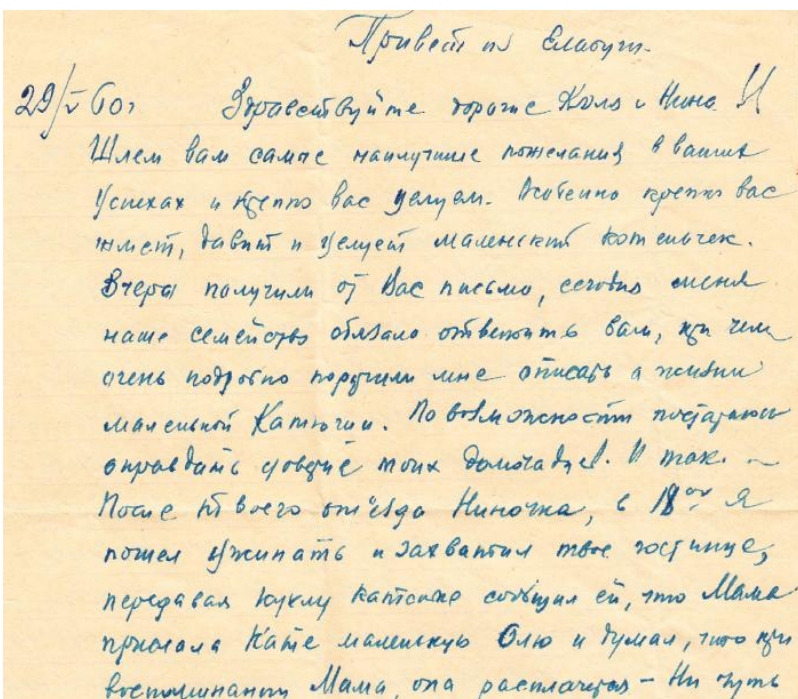 Привет из Елабуги.
29/V 60г Здравствуйте дорогие Коля и Нина!!
Шлем вам самые наилучшие пожелания в ваших
успехах и крепко вас целуем. Особенно крепко вас
жмет, давит и целует маленький котеньчек.
Вчера получили от Вас письмо, сегодня меня
наше семейство обязало ответить вам, при чем
очень подробно поручили мне описать о жизни
маленькой Катюши. По возможности постараюсь
оправдать доверие моих домочадцев. И так. ~
После твоего отъезда Ниночка, в 18 00 я
пошел ужинать и захватил твое гостинце,
передавая куклу Катеньке сообщил ей, что Мама
прислала Кате маленькую Олю и думал, что при
воспоминании Мама, она расплачется – Ни чуть